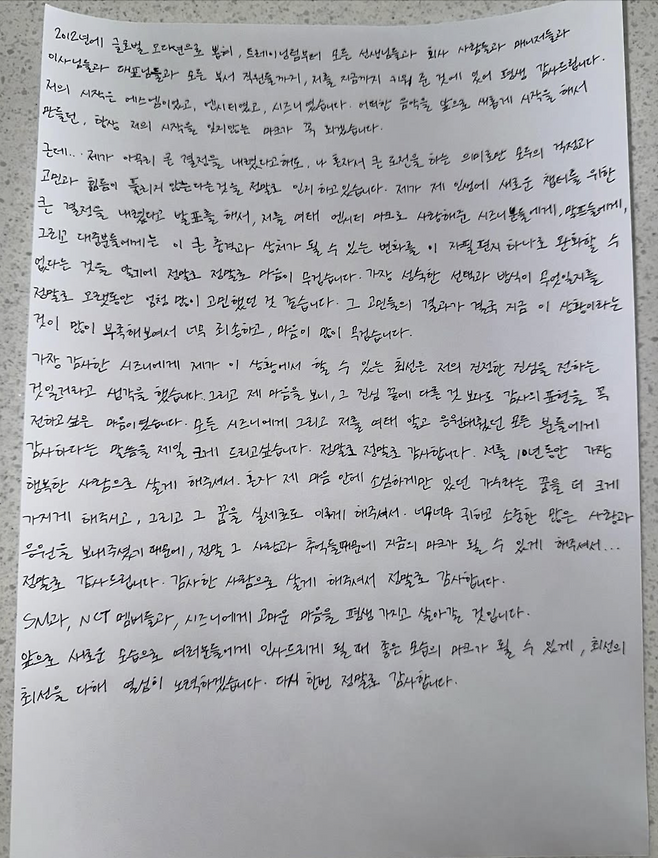 2012년에 글로벌 오디션으로 뽑혀, 트레이닝팀부터 모든 선생님들과 회사 사람들과 매니저들과
이사님들과 대표님들과 모든 부서 직원들까지, 저를 지금까지 키워 준 것에 있어 평생 감사드립니다.
저의 시작은 에스엠이었고, 엔시티였고, 시즈니였습니다. 어떠한 음악을 앞으로 새롭게 시작을 해서
만들던, 항상 저의 시작을 잊지않는 마크가 꼭 되겠습니다.
근데... 제가 아무리 큰 결정을 내렸다고해도, 나 혼자서 큰 도전을 하는 의미로만 모두의 걱정과
고민과 힘듦이 풀리지 않는다는것을 정말로 인지하고있습니다. 제가 제 인생에 새로운 챕터를 위한
큰 결정을 내렸다고 발표를 해서, 저를 여태 엔시티 마크로 사랑해준 시즈니분들에게, 말프들에게,
그리고 대중분들에게는 이 큰 충격과 상처가 될 수 있는 변화를 이 자필편지 하나로 완화할 수
없다는 것을 알기에 정말로 정말로 마음이 무겁습니다. 가장 성숙한 선택과 방식이 무엇일지를
정말로 오랫동안 엄청 많이 고민했던 것 같습니다. 그 고민들의 결과가 결국 지금 이 상황이라는
것이 많이 부족해보여서 너무 죄송하고, 마음이 많이 무겁습니다.
가장 감사한 시즈니에게 제가 이 상황에서 할 수 있는 최선은 저의 진정한 진심을 전하는
것일거라고 생각을 했습니다. 그리고 제 마음을 보니, 그 진심 중에 다른 것 보다도 감사의 표현을 꼭
전하고 싶은 마음이었습니다. 모든 시즈니에게 그리고 저를 여태 알고 응원해줬던 모든 분들에게
감사하다는 말씀을 제일 크게 드리고싶습니다. 정말로 정말로 감사합니다. 저를 10년동안 가장
행복한 사람으로 살게 해주셔서. 혼자 제 마음 안에 소심하게만 있던 가수라는 꿈을 더 크게
가지게 해주시고, 그리고 그 꿈을 실제로도 이루게 해주셔서. 너무너무 귀하고 소중한 많은 사랑과
응원을 보내주셨기 때문에, 정말 그 사랑과 추억들때문에 지금의 마크가 될 수 있게 해주셔서...
정말로 감사드립니다. 감사한 사람으로 살게 해주셔서 정말로 감사합니다.
SM과, NCT 멤버들과, 시즈니에게 고마운 마음을 평생 가지고 살아갈 것입니다.
앞으로 새로운 모습으로 여러분들에게 인사드리게 될 때 좋은 모습의 마크가 될 수 있게, 최선의
최선을 다해 열심히 노력하겠습니다. 다시 한번 정말로 감사합니다.